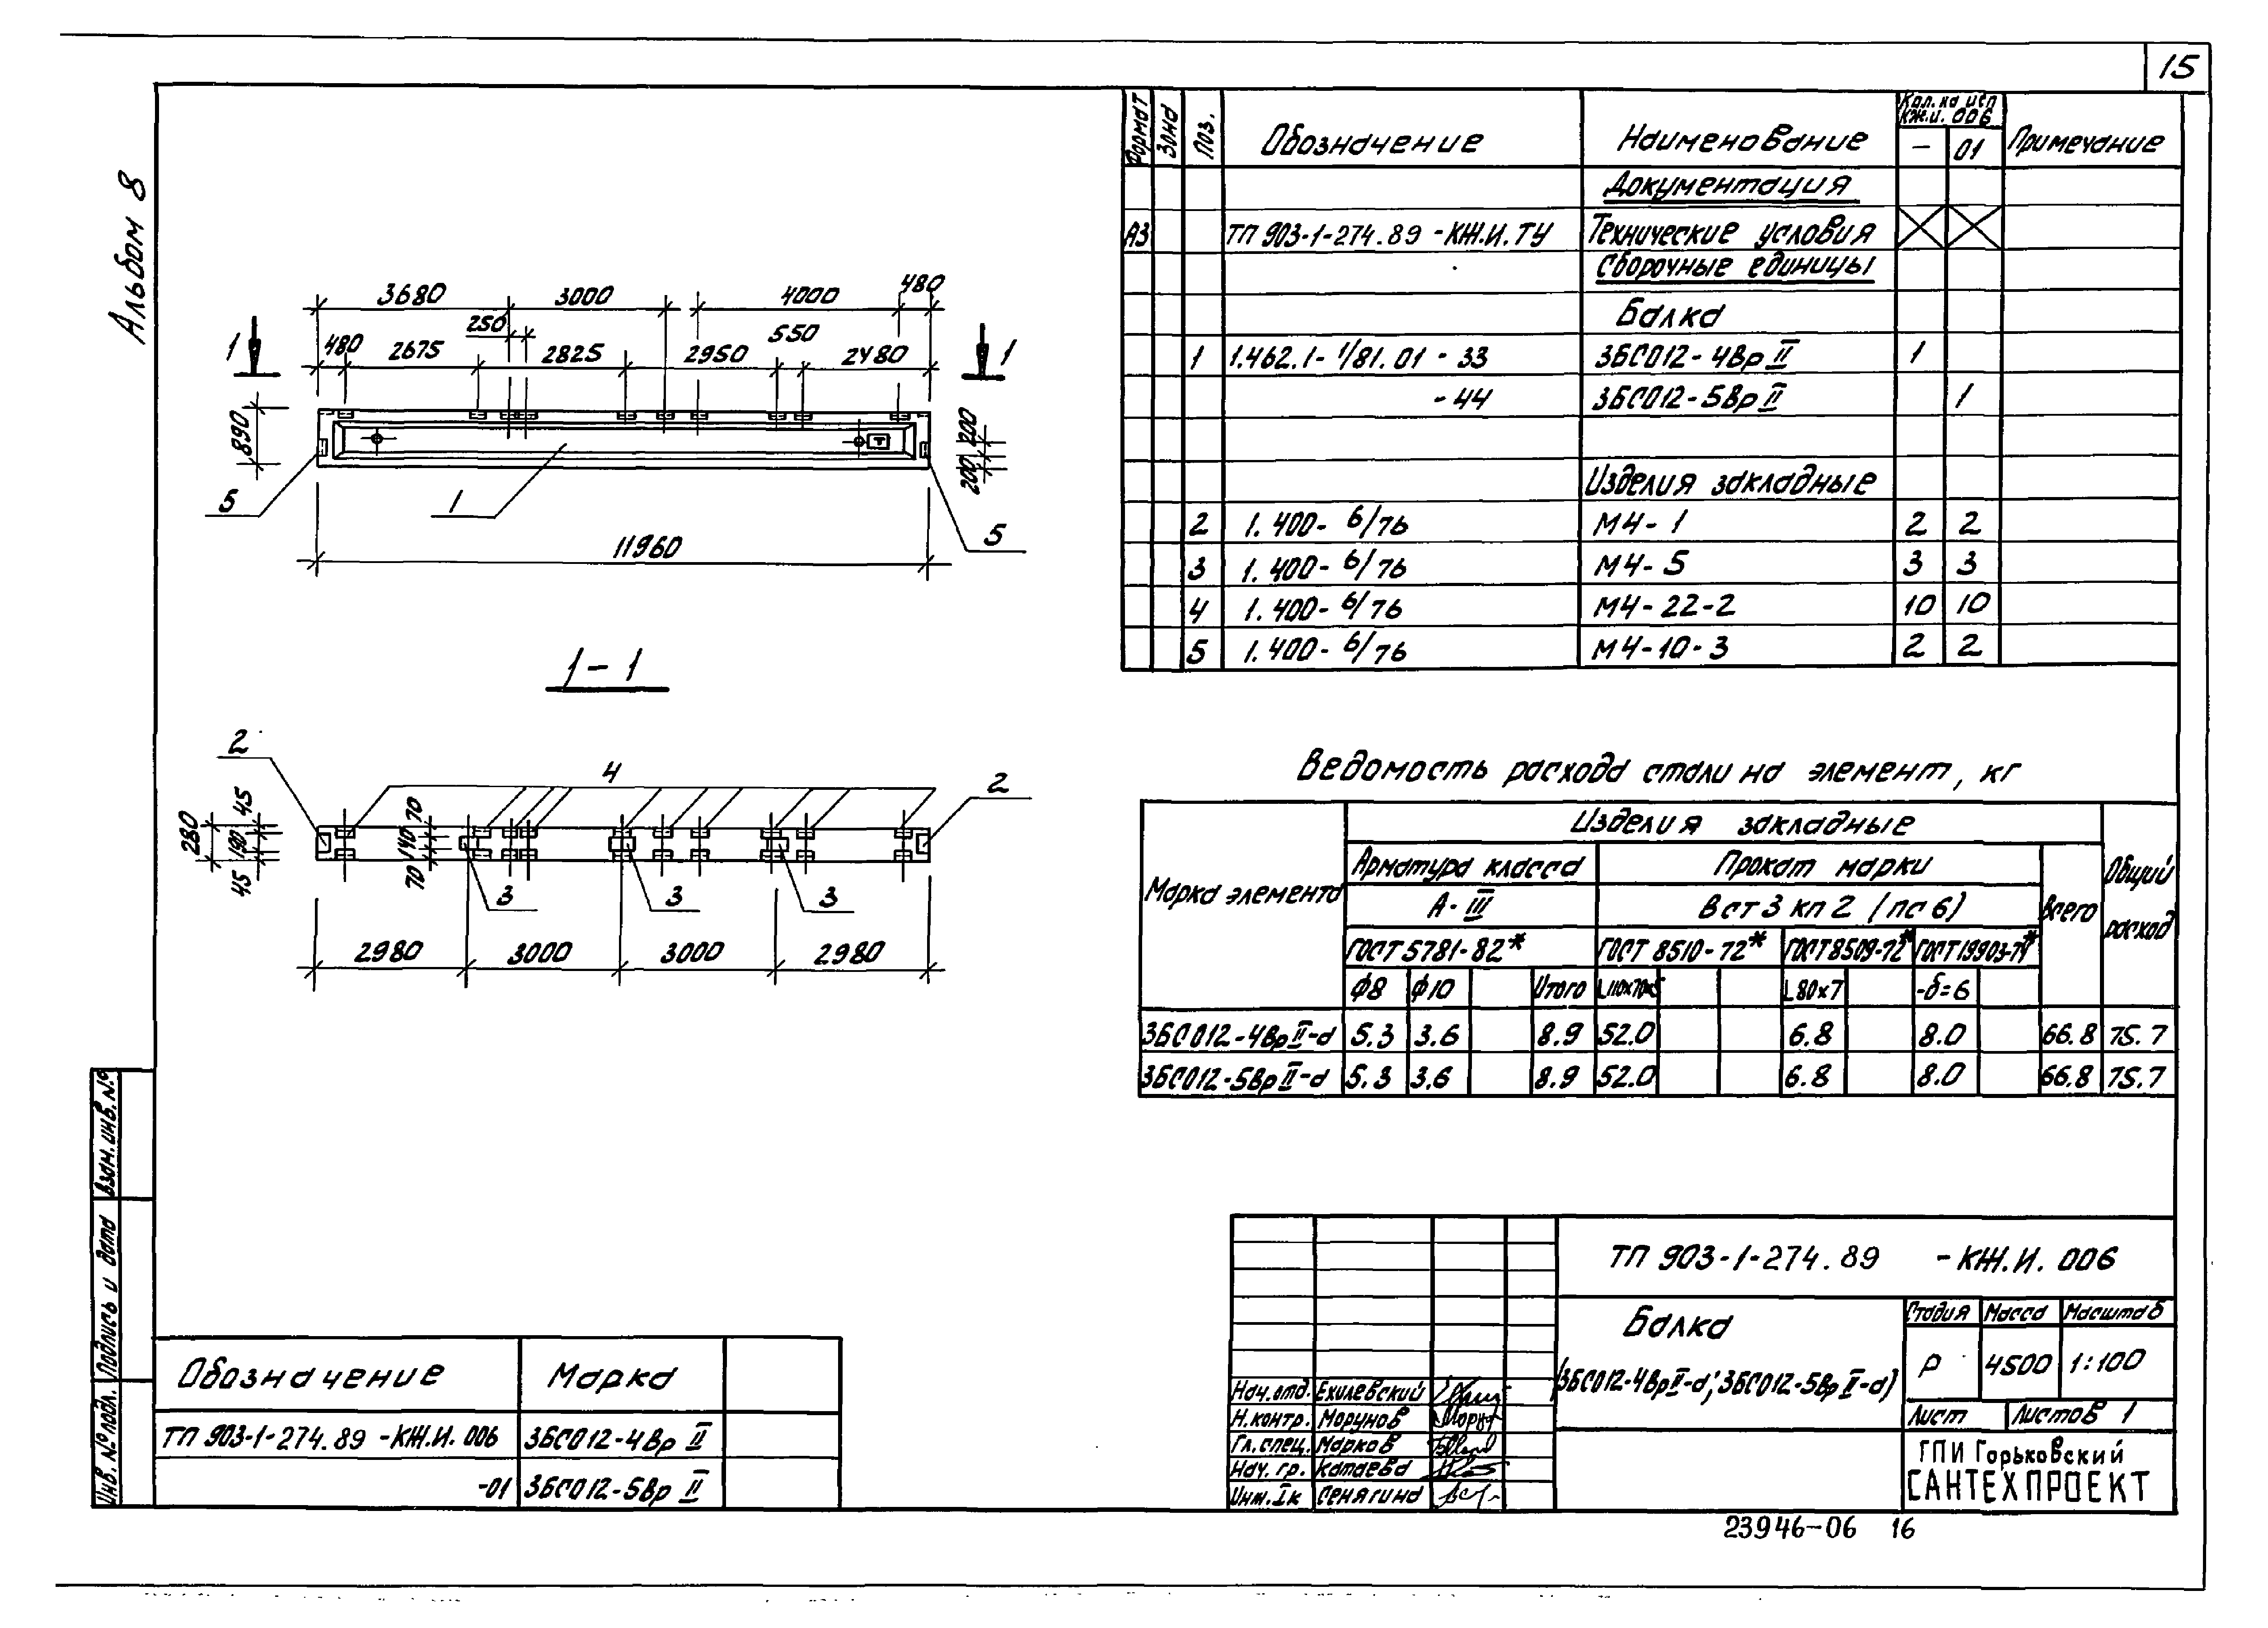 15
Альбом 8
3680 3000 4000 480
250 550
480 2675 2825 2950 2480
1 1
890
200
200
5 1 5
11960
1-1
2 4 2
280
45
190
45
70
140
70
3 3 3
2980 3000 3000 2980
Формат Зона Поз. Обозначение Наименование Кол. на исп КЖ.И. 006 Примечание
- 01
Документация
А3 ТП 903-1-274.89 -КЖ.И.ТУ Технические условия
Сборочные единицы
Балка
1 1.462.1-1/81.01 - 33 3БСО12-4Вр II 1
- 44 3БСО12-5Вр II 1
Изделия закладные
2 1.400-6/76 М4-1 2 2
3 1.400-6/76 М4-5 3 3
4 1.400-6/76 М4-22-2 10 10
5 1.400-6/76 М4-10-3 2 2
Ведомость расхода стали на элемент, кг
Марка элемента Изделия закладные Общий расход
Арматура класса Прокат марки Всего
А-III Вст3 кп2 (пс6)
ГОСТ 5781-82* ГОСТ 8510-72* ГОСТ 8509-72* ГОСТ 19903-74*
ф8 ф10 Итого L110х70х5 L80х7 -δ=6
3БСО12-4Вр II-а 5.3 3.6 8.9 52.0 6.8 8.0 66.8 75.7
3БСО12-5Вр II-а 5.3 3.6 8.9 52.0 6.8 8.0 66.8 75.7
Взам. инв. №
Подпись и дата
Инв. № подл.
Обозначение Марка
ТП 903-1-274.89 -КЖ.И. 006 3БСО12-4Вр II
-01 3БСО12-5Вр II
ТП 903-1-274.89 -КЖ.И. 006
Балка
(3БСО12-4Вр II-а; 3БСО12-5Вр II-а)
Стадия Масса Масштаб
Р 4500 1:100
Лист Листов 1
ГПИ Горьковский
САНТЕХПРОЕКТ
Нач. отд. Ехилевский
Н. контр. Морунов
Гл. спец. Марков
Нач. гр. Катаева
Инж. Iк Сенягина
23946-06 16